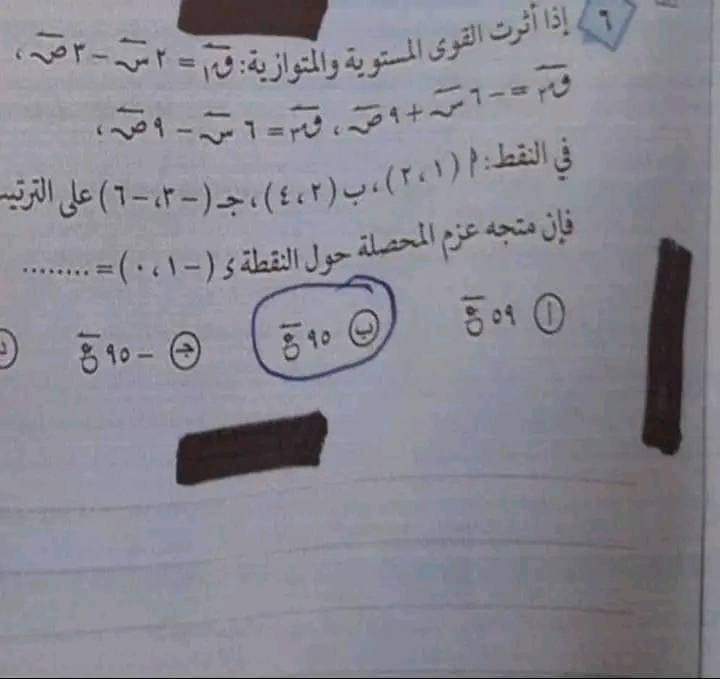 ٦ إذا أثرت القوى المستوية والمتوازية: ق١ = ٢ س − ٣ ص ،
ق٢ = − ٦ س + ٩ ص ، ق٣ = ٦ س − ٩ ص ،
في النقط: أ (١ ، ٢) ، ب (٢ ، ٤) ، جـ (− ٣ ، − ٦) على
فإن متجه عزم المحصلة حول النقطة ء (− ١ ، ٠) = ........
أ ٥٩ ع ب ٩٥ ع جـ − ٩٥ ع د